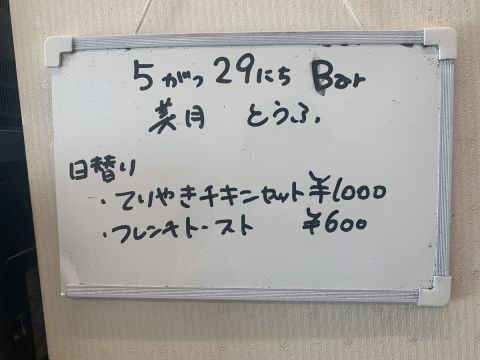 5がつ29にち Bar
美月 とうふ
日替り
・てりやきチキンセット ¥1000
・フレンチトースト ¥600